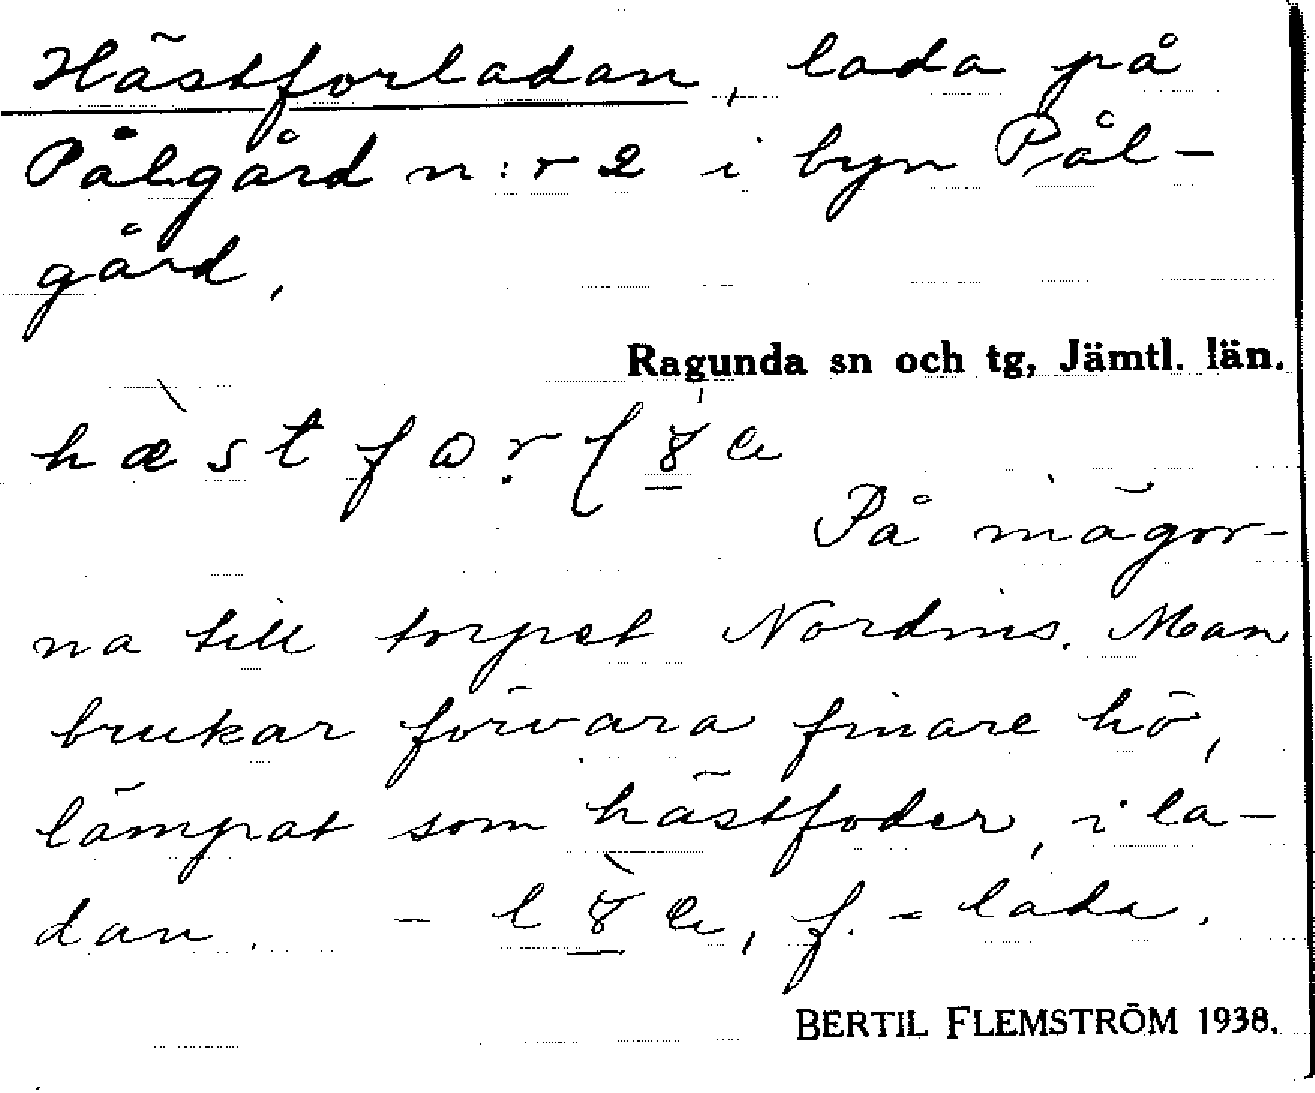 Hästforladan, lada på
Pålgård n:r 2 i byn Pål-
gård.
Ragunda sn och tg, Jämtl. län.
På mägor-
na till torpet Nordins. Man
brukar förvara finare hö,
lämpat som hästfoder, i la-
dan. - f. = lada.
BERTIL FLEMSTRÖM 1938.